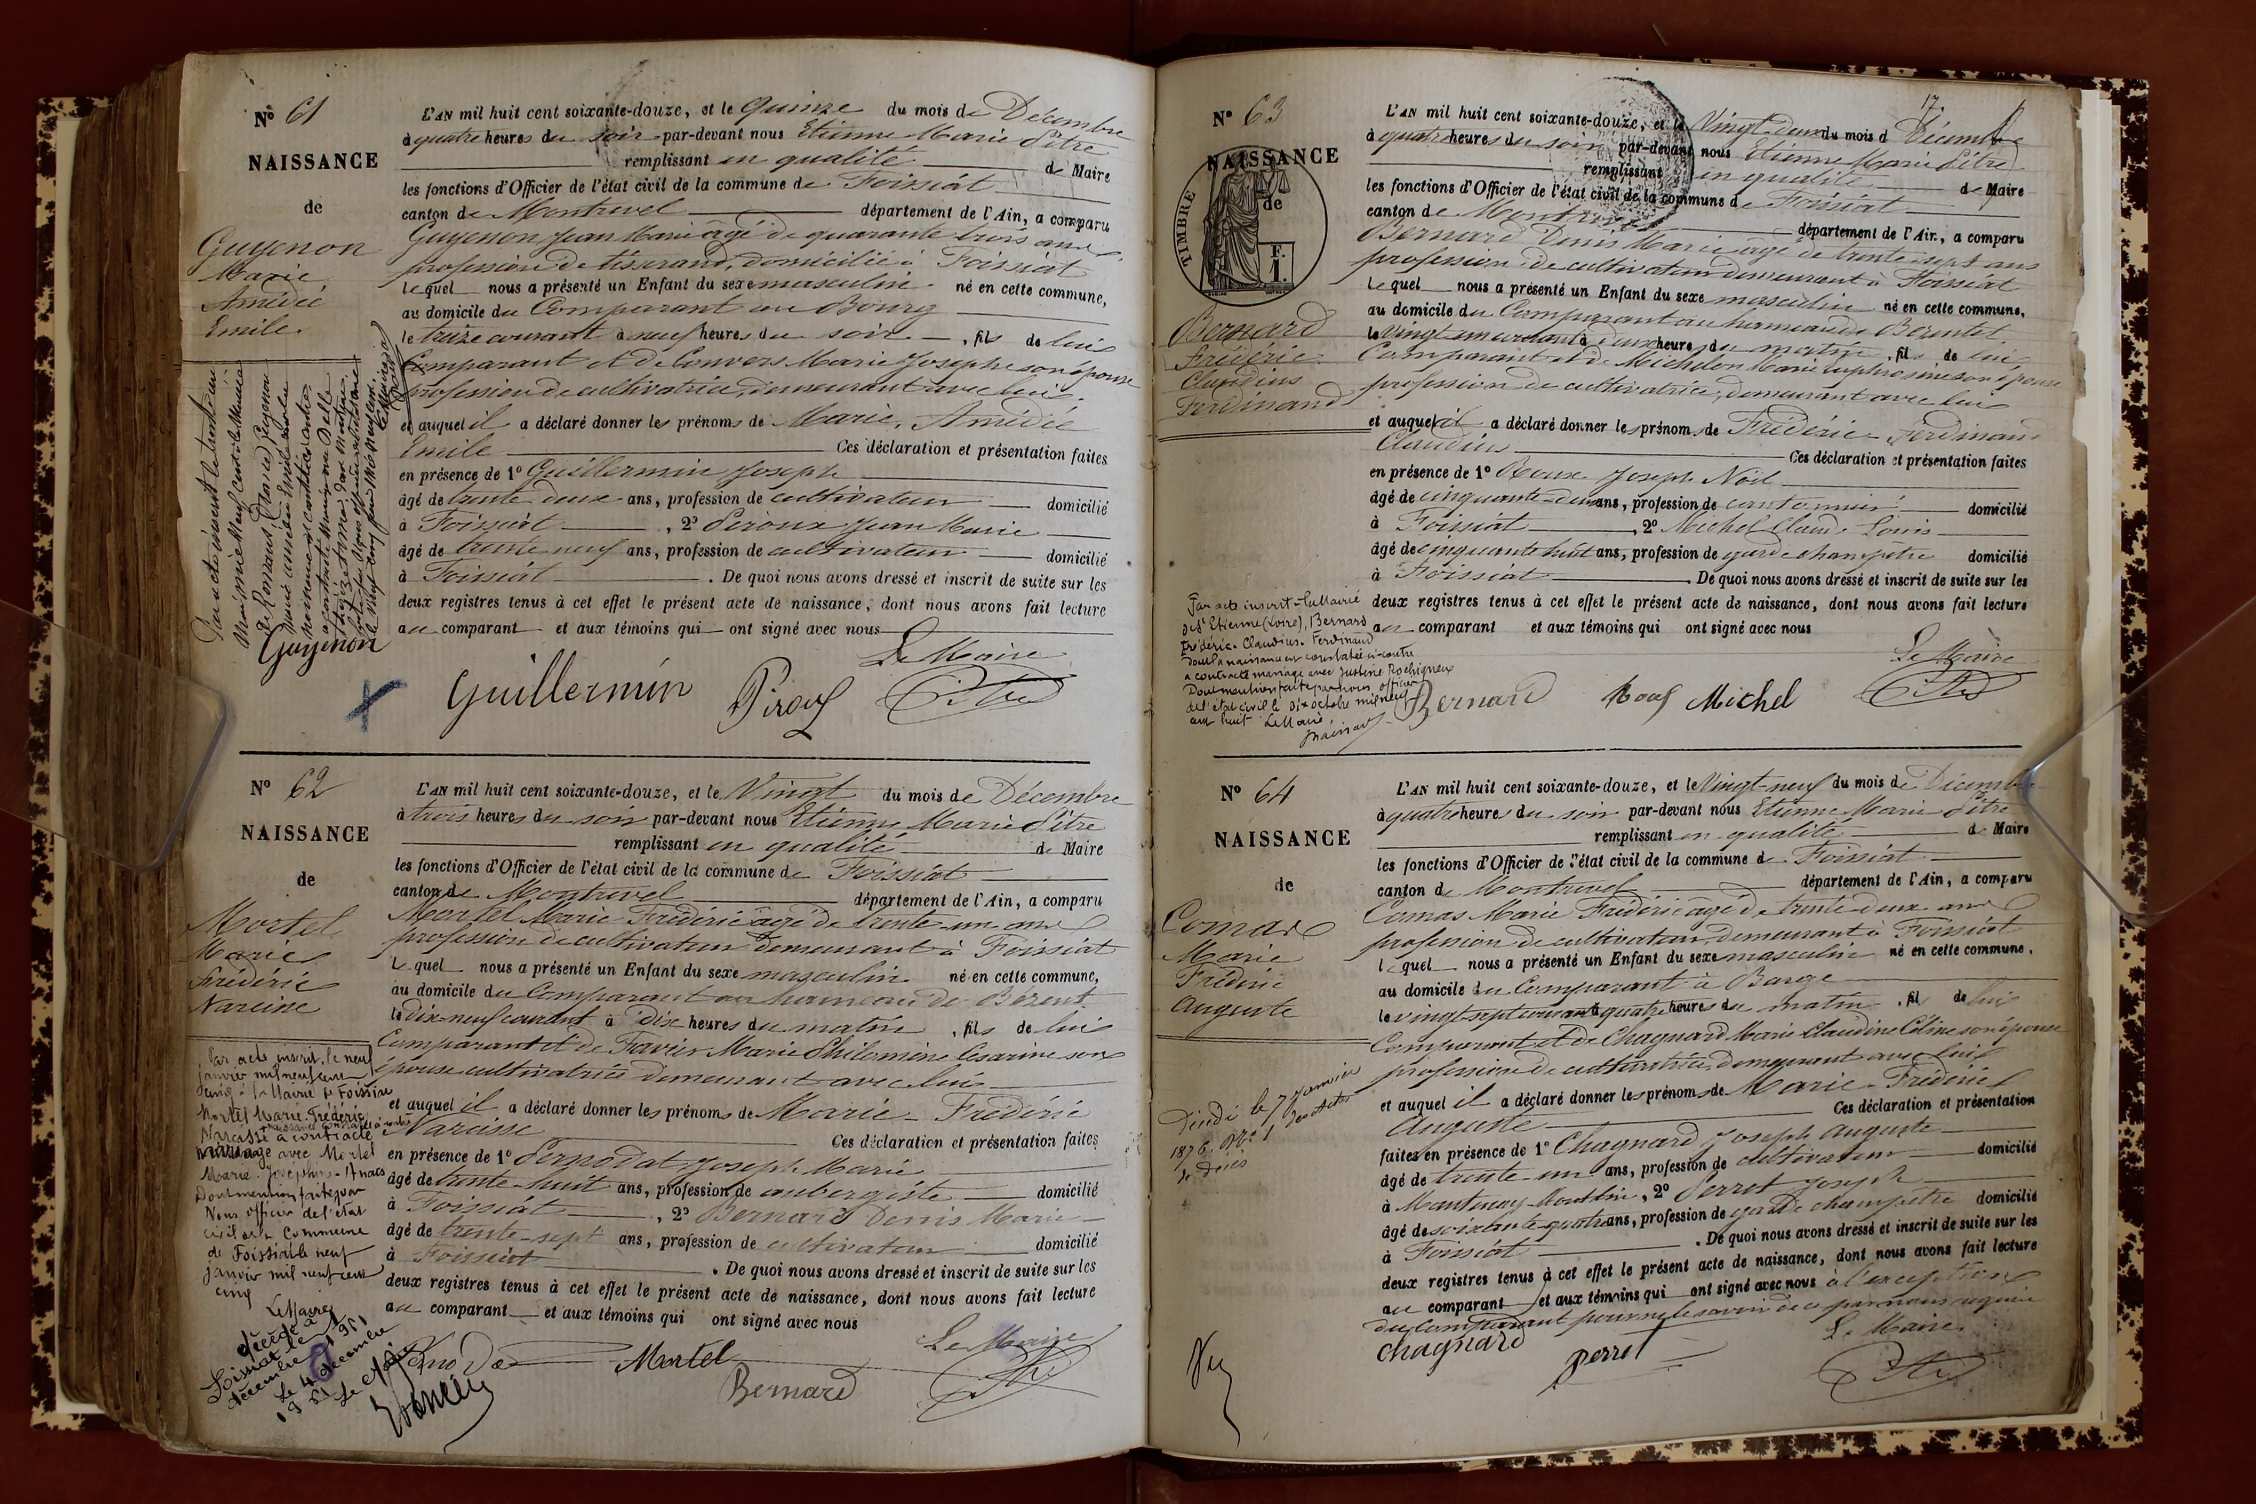 Nº 61
NAISSANCE
de
Guyenon
Marie
Amédée
Emile
L'AN mil huit cent soixante-douze, et le Quinze du mois de Décembre
à quatre heures du soir par-devant nous Etienne Marie Pitre
remplissant en qualité de Maire
les fonctions d'Officier de l'état civil de la commune de Foissiat
canton de Montrevel département de l'Ain, a comparu
Guyenon Jean Marie âgé de quarante trois ans
profession de tisserand, domicilié à Foissiat
lequel nous a présenté un Enfant du sexe masculin né en cette commune,
au domicile du Comparant au Bourg
le treize courant à neuf heures du soir, fils de lui
Comparant et de Convers Marie Josephe son épouse
profession de cultivatrice, demeurant avec lui
et auquel il a déclaré donner les prénoms de Marie, Amédée
Emile Ces déclaration et présentation faites
en présence de 1º Guillermin Joseph
âgé de trente deux ans, profession de cultivateur domicilié
à Foissiat, 2º Piroux Jean Marie
âgé de trente neuf ans, profession de cultivateur domicilié
à Foissiat. De quoi nous avons dressé et inscrit de suite sur les
deux registres tenus à cet effet le présent acte de naissance, dont nous avons fait lecture
au comparant et aux témoins qui ont signé avec nous
Le Maire
Guyenon Guillermin Piroux Pitre
Nº 62
NAISSANCE
de
Mortel
Marie
Frédéric
Narcisse
Par acte inscrit le neuf
janvier mil neuf cent
cinq à la Mairie de Foissiat
Mortel Marie Frédéric
Narcisse naissance constatée ci-contre a contracté
mariage avec Mortel
Marie Josephine
Dont mention faite par
Nous officier de l'état
civil de la Commune
de Foissiat le neuf
janvier mil neuf cent
cinq
Le Maire
décédé à
Foissiat le
décembre 1951
le 4 décembre
1951 Le Maire
L'AN mil huit cent soixante-douze, et le Vingt du mois de Décembre
à trois heures du soir par-devant nous Etienne Marie Pitre
remplissant en qualité de Maire
les fonctions d'Officier de l'état civil de la commune de Foissiat
canton de Montrevel département de l'Ain, a comparu
Mortel Marie Frédéric âgé de trente un ans
profession de cultivateur demeurant à Foissiat
lequel nous a présenté un Enfant du sexe masculin né en cette commune,
au domicile du Comparant au hameau de Bérent
le dix-neuf courant à dix heures du matin, fils de lui
Comparant et de Favier Marie Philomène Césarine son
épouse cultivatrice demeurant avec lui
et auquel il a déclaré donner les prénoms de Marie Frédéric
Narcisse Ces déclaration et présentation faites
en présence de 1º Pernodat Joseph Marie
âgé de trente-huit ans, profession de aubergiste domicilié
à Foissiat, 2º Bernard Denis Marie
âgé de trente-sept ans, profession de cultivateur domicilié
à Foissiat. De quoi nous avons dressé et inscrit de suite sur les
deux registres tenus à cet effet le présent acte de naissance, dont nous avons fait lecture
au comparant et aux témoins qui ont signé avec nous
Le Maire
Mortel Bernard Pitre
17.
Nº 63
NAISSANCE
de
TIMBRE
1 F.
Bernard
Frédéric
Claudius
Ferdinand
Par acte inscrit à la Mairie
de St Etienne (Loire), Bernard
Frédéric Claudius Ferdinand
dont la naissance est constatée ci-contre
a contracté mariage avec Justine Rochigneux
Dont mention faite par nous officier
de l'état civil le dix octobre mil neuf
cent huit Le Maire
L'AN mil huit cent soixante-douze, et le Vingt-deux du mois de Décembre
à quatre heures du soir par-devant nous Etienne Marie Pitre
remplissant en qualité de Maire
les fonctions d'Officier de l'état civil de la commune de Foissiat
canton de Montrevel département de l'Ain, a comparu
Bernard Denis Marie âgé de trente-sept ans
profession de cultivateur demeurant à Foissiat
lequel nous a présenté un Enfant du sexe masculin né en cette commune,
au domicile du Comparant au hameau de Berentet
le vingt-un courant à deux heures du matin, fils de lui
Comparant et de Michelon Marie Euphrosine son épouse
profession de cultivatrice, demeurant avec lui
et auquel il a déclaré donner les prénoms de Frédéric Ferdinand
Claudius Ces déclaration et présentation faites
en présence de 1º Roux Joseph Noël
âgé de cinquante-deux ans, profession de cantonnier domicilié
à Foissiat, 2º Michel Claude Louis
âgé de cinquante huit ans, profession de garde champêtre domicilié
à Foissiat. De quoi nous avons dressé et inscrit de suite sur les
deux registres tenus à cet effet le présent acte de naissance, dont nous avons fait lecture
au comparant et aux témoins qui ont signé avec nous
Le Maire
Bernard Roux Michel Pitre
Nº 64
NAISSANCE
de
Comas
Marie
Frédéric
Auguste
Décédé le 7 Janvier
1876. Nº 1 des actes
de décès
Vu
L'AN mil huit cent soixante-douze, et le Vingt-neuf du mois de Décembre
à quatre heures du soir par-devant nous Etienne Marie Pitre
remplissant en qualité de Maire
les fonctions d'Officier de l'état civil de la commune de Foissiat
canton de Montrevel département de l'Ain, a comparu
Comas Marie Frédéric âgé de trente-deux ans
profession de cultivateur, demeurant à Foissiat
lequel nous a présenté un Enfant du sexe masculin né en cette commune,
au domicile du Comparant à Barge
le vingt-sept courant à quatre heures du matin, fils de lui
Comparant et de Chagnard Marie Claudine Céline son épouse
profession de cultivatrice, demeurant avec lui
et auquel il a déclaré donner les prénoms de Marie Frédéric
Auguste Ces déclaration et présentation
faites en présence de 1º Chagnard Joseph Auguste
âgé de trente un ans, profession de cultivateur domicilié
à Mantenay-Montlin, 2º Perret Joseph
âgé de soixante-quatre ans, profession de garde champêtre domicilié
à Foissiat. De quoi nous avons dressé et inscrit de suite sur les
deux registres tenus à cet effet le présent acte de naissance, dont nous avons fait lecture
au comparant et aux témoins qui ont signé avec nous à l'exception
du Comparant pour ne le savoir de ce par nous requis
Le Maire
Chagnard Perret Pitre